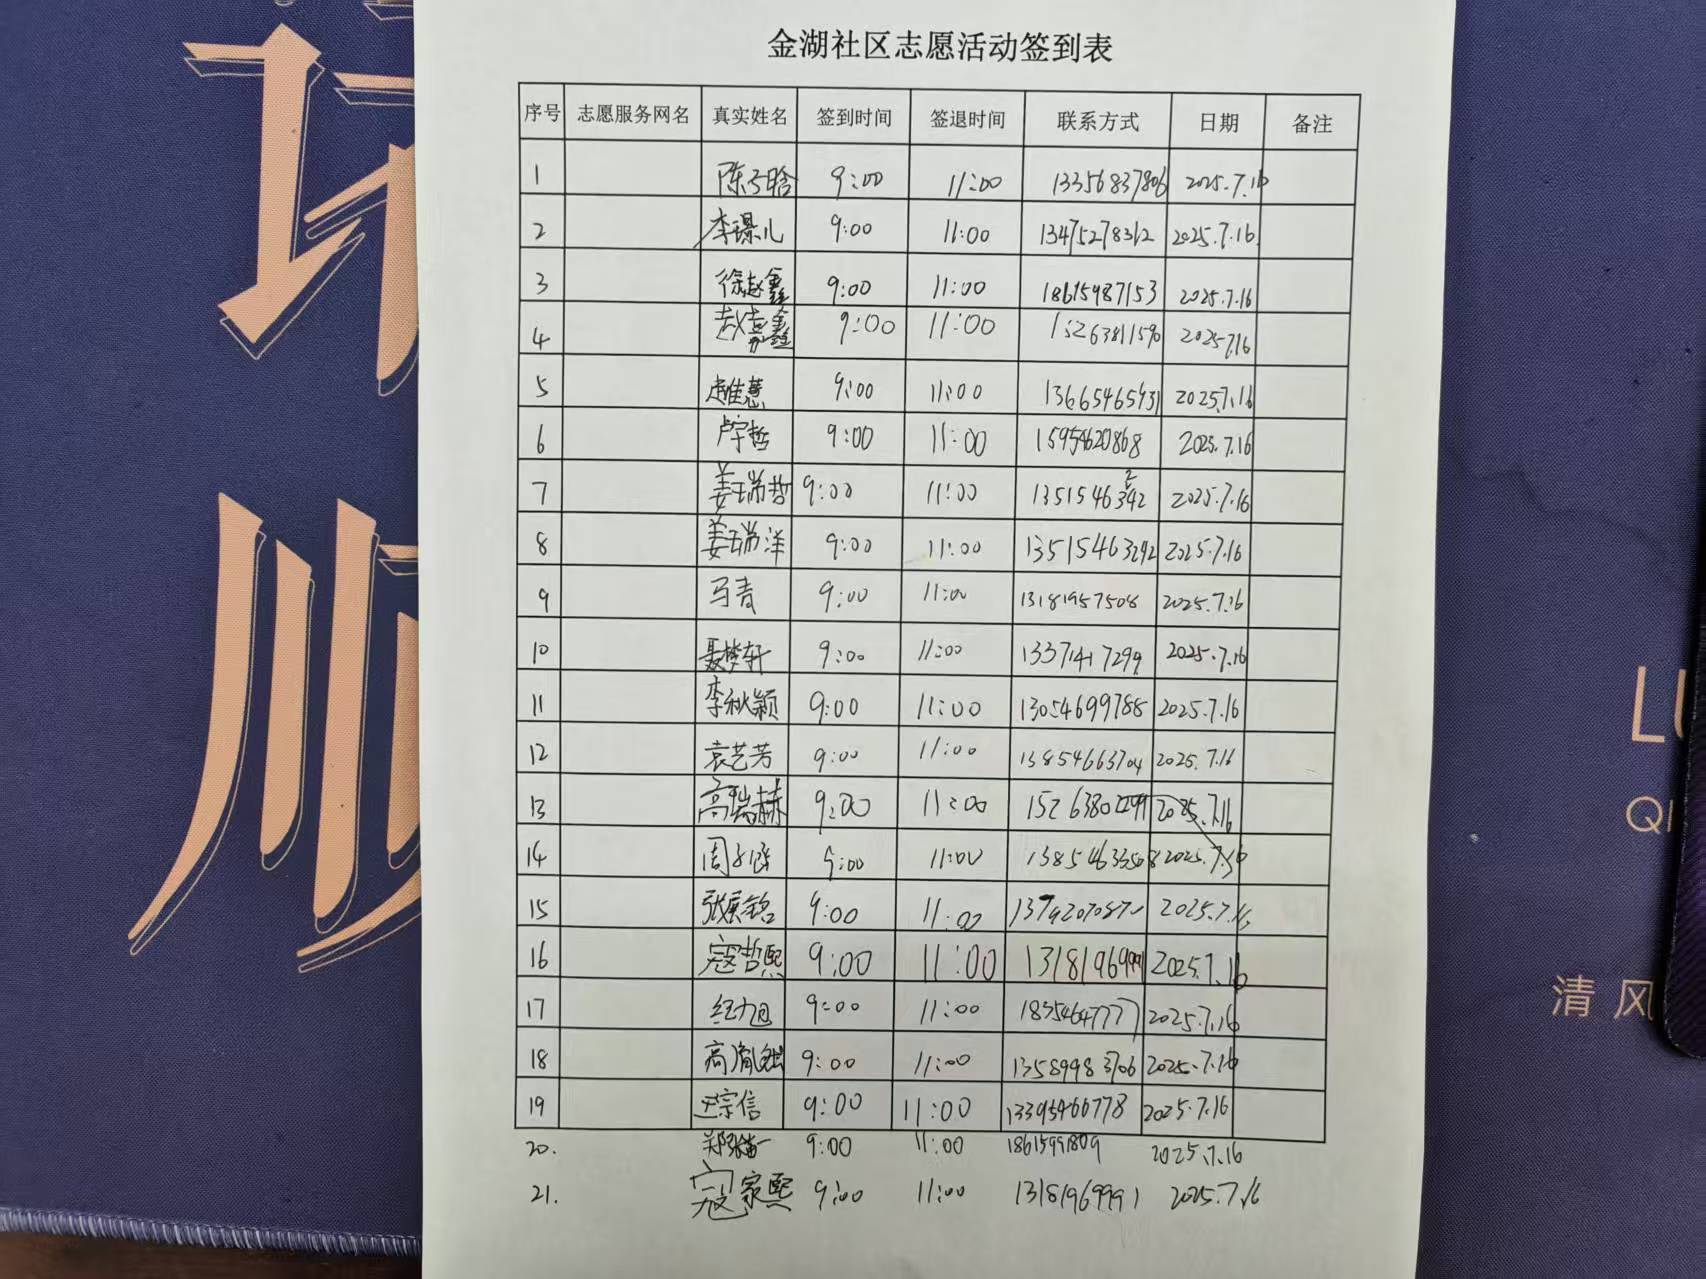 金湖社区志愿活动签到表
序号 志愿服务网名 真实姓名 签到时间 签退时间 联系方式 日期 备注
1 陈子晗 9:00 11:00 13356837806 2025.7.16
2 李璟儿 9:00 11:00 13475278312 2025.7.16
3 徐赵鑫 9:00 11:00 18615987153 2025.7.16
4 赵嘉鑫 9:00 11:00 15263811590 2025.7.16
5 9:00 11:00 13665465931 2025.7.16
6 卢宇哲 9:00 11:00 15954620868 2025.7.16
7 姜瑞哲 9:00 11:00 2025.7.16
8 姜瑞洋 9:00 11:00 13515463292 2025.7.16
9 马青 9:00 11:00 13181957508 2025.7.16
10 聂梦轩 9:00 11:00 13371417299 2025.7.16
11 李秋颖 9:00 11:00 13054699788 2025.7.16
12 袁艺芳 9:00 11:00 13854663704 2025.7.16
13 高瑞赫 9:00 11:00 2025.7.16
14 周子涵 9:00 11:00 13854633508 2025.7.16
15 9:00 11:00 2025.7.16
16 寇哲熙 9:00 11:00 13181969991 2025.7.16
17 9:00 11:00 18354647777 2025.7.16
18 9:00 11:00 13589983706 2025.7.16
19 宗信 9:00 11:00 13395466778 2025.7.16
20. 9:00 11:00 18615991809 2025.7.16
21. 寇家熙 9:00 11:00 13181969991 2025.7.16
顺
清风